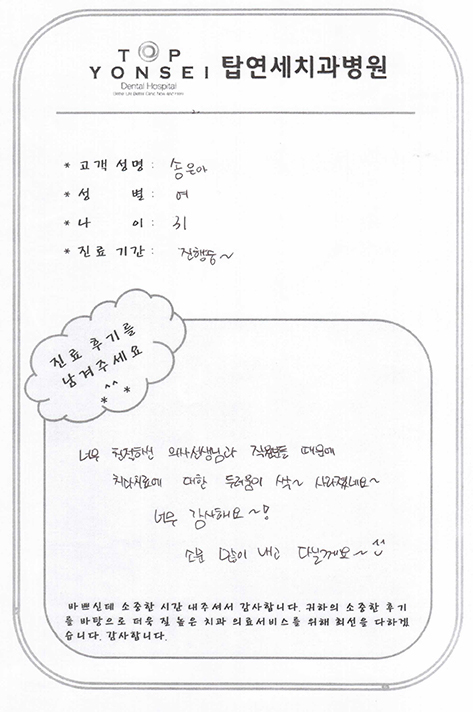 TOP
YONSEI 탑연세치과병원
Dental Hospital
* 고객 성명 : 송은아
* 성 별 : 여
* 나 이 : 31
* 진료 기간 : 진행중~
진료 후기를
남겨주세요
^^
* *
너무 친절하신 의사선생님과 직원분들 때문에
치과치료에 대한 두려움이 싹~ 사라졌네요~
너무 감사해요~!
소문 많이 내고 다닐게요~^^
바쁘신데 소중한 시간 내주셔서 감사합니다. 귀하의 소중한 후기
를 바탕으로 더욱 질 높은 치과 의료서비스를 위해 최선을 다하겠
습니다. 감사합니다.